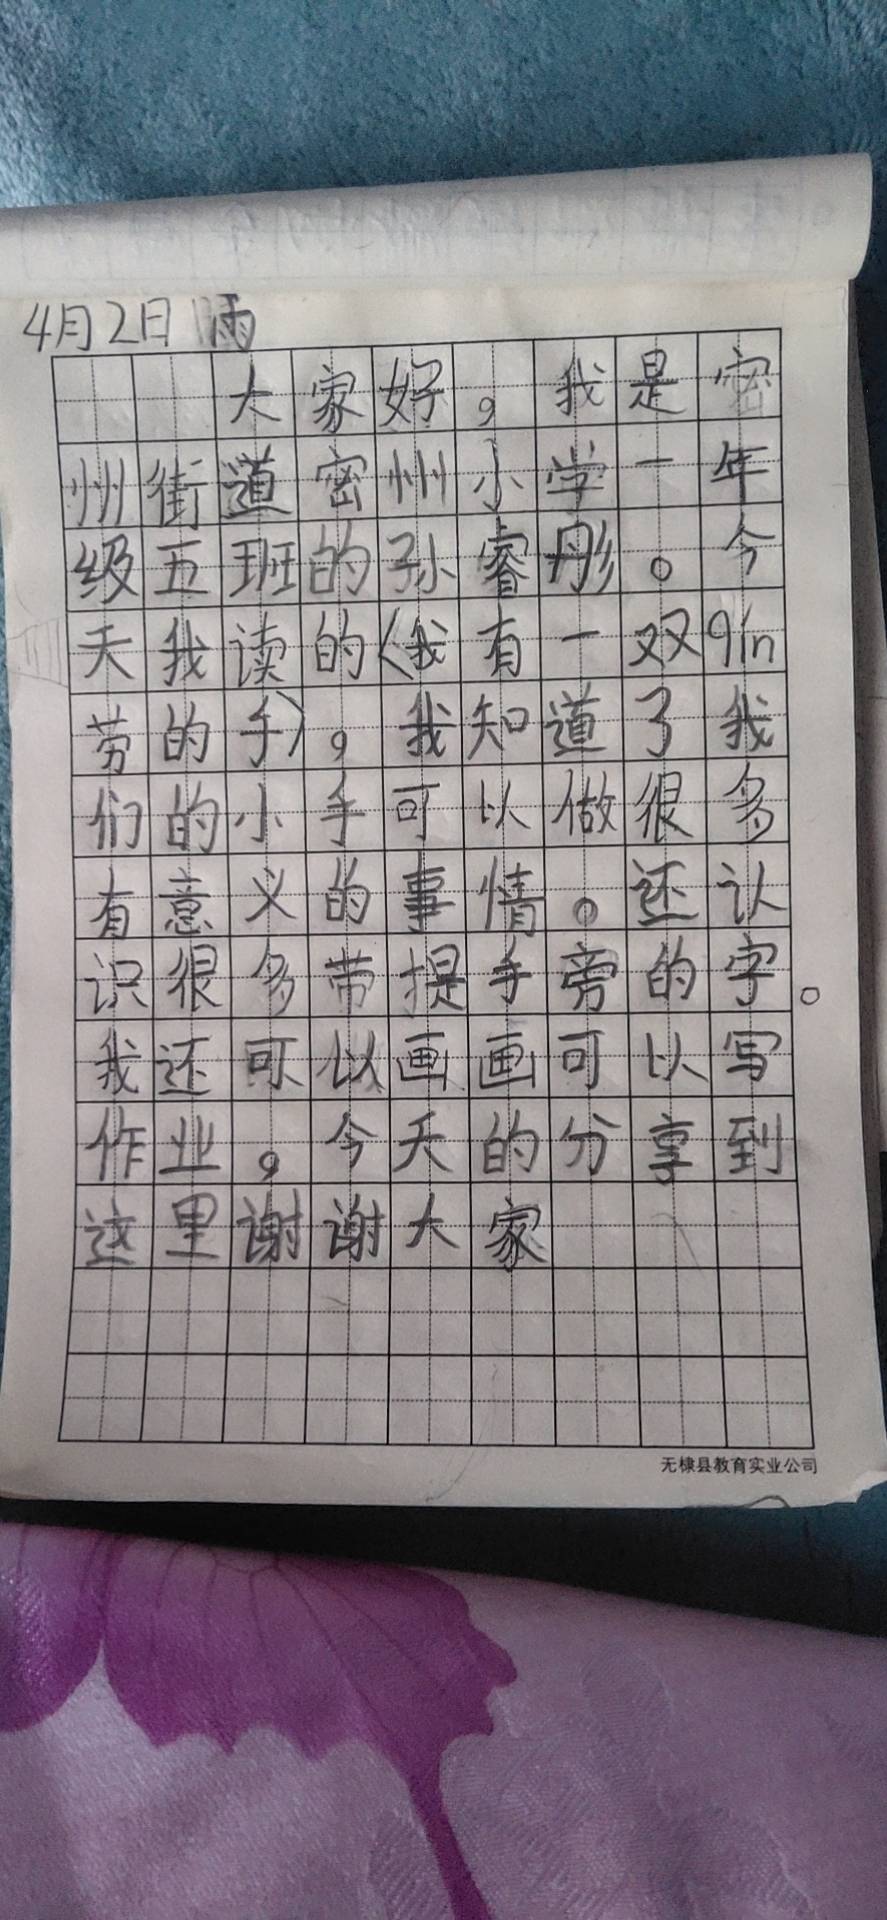 4月2日 雨
大家好，我是密
州街道密州小学一年
级五班的孙睿彤。今
天我读的《我有一双qin
劳的手》，我知道了我
们的小手可以做很多
有意义的事情。还认
识很多带提手旁的字。
我还可以画画可以写
作业，今天的分享到
这里谢谢大家
无棣县教育实业公司